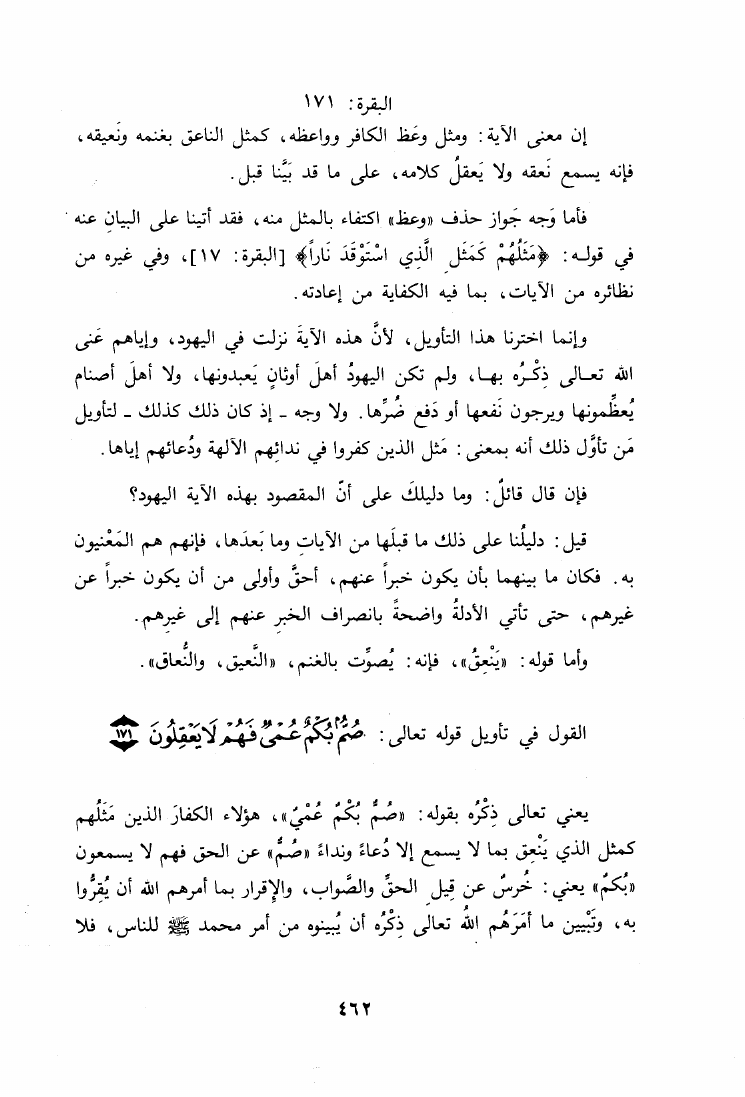 البقرة: ١٧١
إن معنى الآية: ومثل وعَظ الكافر وواعظه، كمثل الناعق بغنمه ونَعيقه،
فإنه يسمع نَعقه ولا يَعقلُ كلامه، على ما قد بَيَّنا قبل.
فأما وَجه جَواز حذف «وعظ» اكتفاء بالمثل منه، فقد أتينا على البيان عنه
في قولـه: ﴿مَثَلُهُمْ كَمَثَلِ الَّذِي اسْتَوْقَدَ نَاراً﴾ [البقرة: ١٧]، وفي غيره من
نظائره من الآيات، بما فيه الكفاية من إعادته.
وإنما اخترنا هذا التأويل، لأنَّ هذه الآيةَ نزلت في اليهود، وإياهم عَنى
الله تعـالى ذِكْـرُه بهـا، ولم تكن اليهودُ أهلَ أوثانٍ يَعبدونها، ولا أهلَ أصنام
يُعظِّمونها ويرجون نَفعها أو دَفع ضُرِّها. ولا وجه - إذ كان ذلك كذلك - لتأويل
مَن تأوَّل ذلك أنه بمعنى: مَثل الذين كفروا في ندائِهم الآلهة ودُعائهم إياها.
فإن قال قائلٌ: وما دليلكَ على أنّ المقصود بهذه الآية اليهود؟
قيل: دليلُنا على ذلك ما قبلَها من الآياتِ وما بَعدَها، فإنهم هم المَعْنيون
به. فكان ما بينهما بأن يكون خبراً عنهم، أحقَّ وأولى من أن يكون خبراً عن
غيرهم، حتى تأتي الأدلةُ واضحةً بانصراف الخبرِ عنهم إلى غيرِهم.
وأما قوله: «يَنْعِقُ»، فإنه: يُصوِّت بالغنم، «النَّعيق، والنُّعاق».
القول في تأويل قوله تعالى: صُمٌّ بُكْمٌ عُمْيٌ فَهُمْ لَا يَعْقِلُونَ ١٧١
يعني تعالى ذِكْرُه بقوله: «صُمٌّ بُكْمٌ عُمْيٌ»، هؤلاء الكفارَ الذين مَثَلُهم
كمثل الذي يَنْعِق بما لا يسمع إلا دُعاءً ونداءً «صُمٌّ» عن الحق فهم لا يسمعون
«بُكمٌ» يعني: خُرسٌ عن قِيلِ الحقِّ والصَّواب، والإقرار بما أمرهم الله أن يُقِرُّوا
به، وتَبْيين ما أمَرَهُم اللهُ تعالى ذِكْرُه أن يُبينوه من أمر محمد ﷺ للناس، فلا
٤٦٢